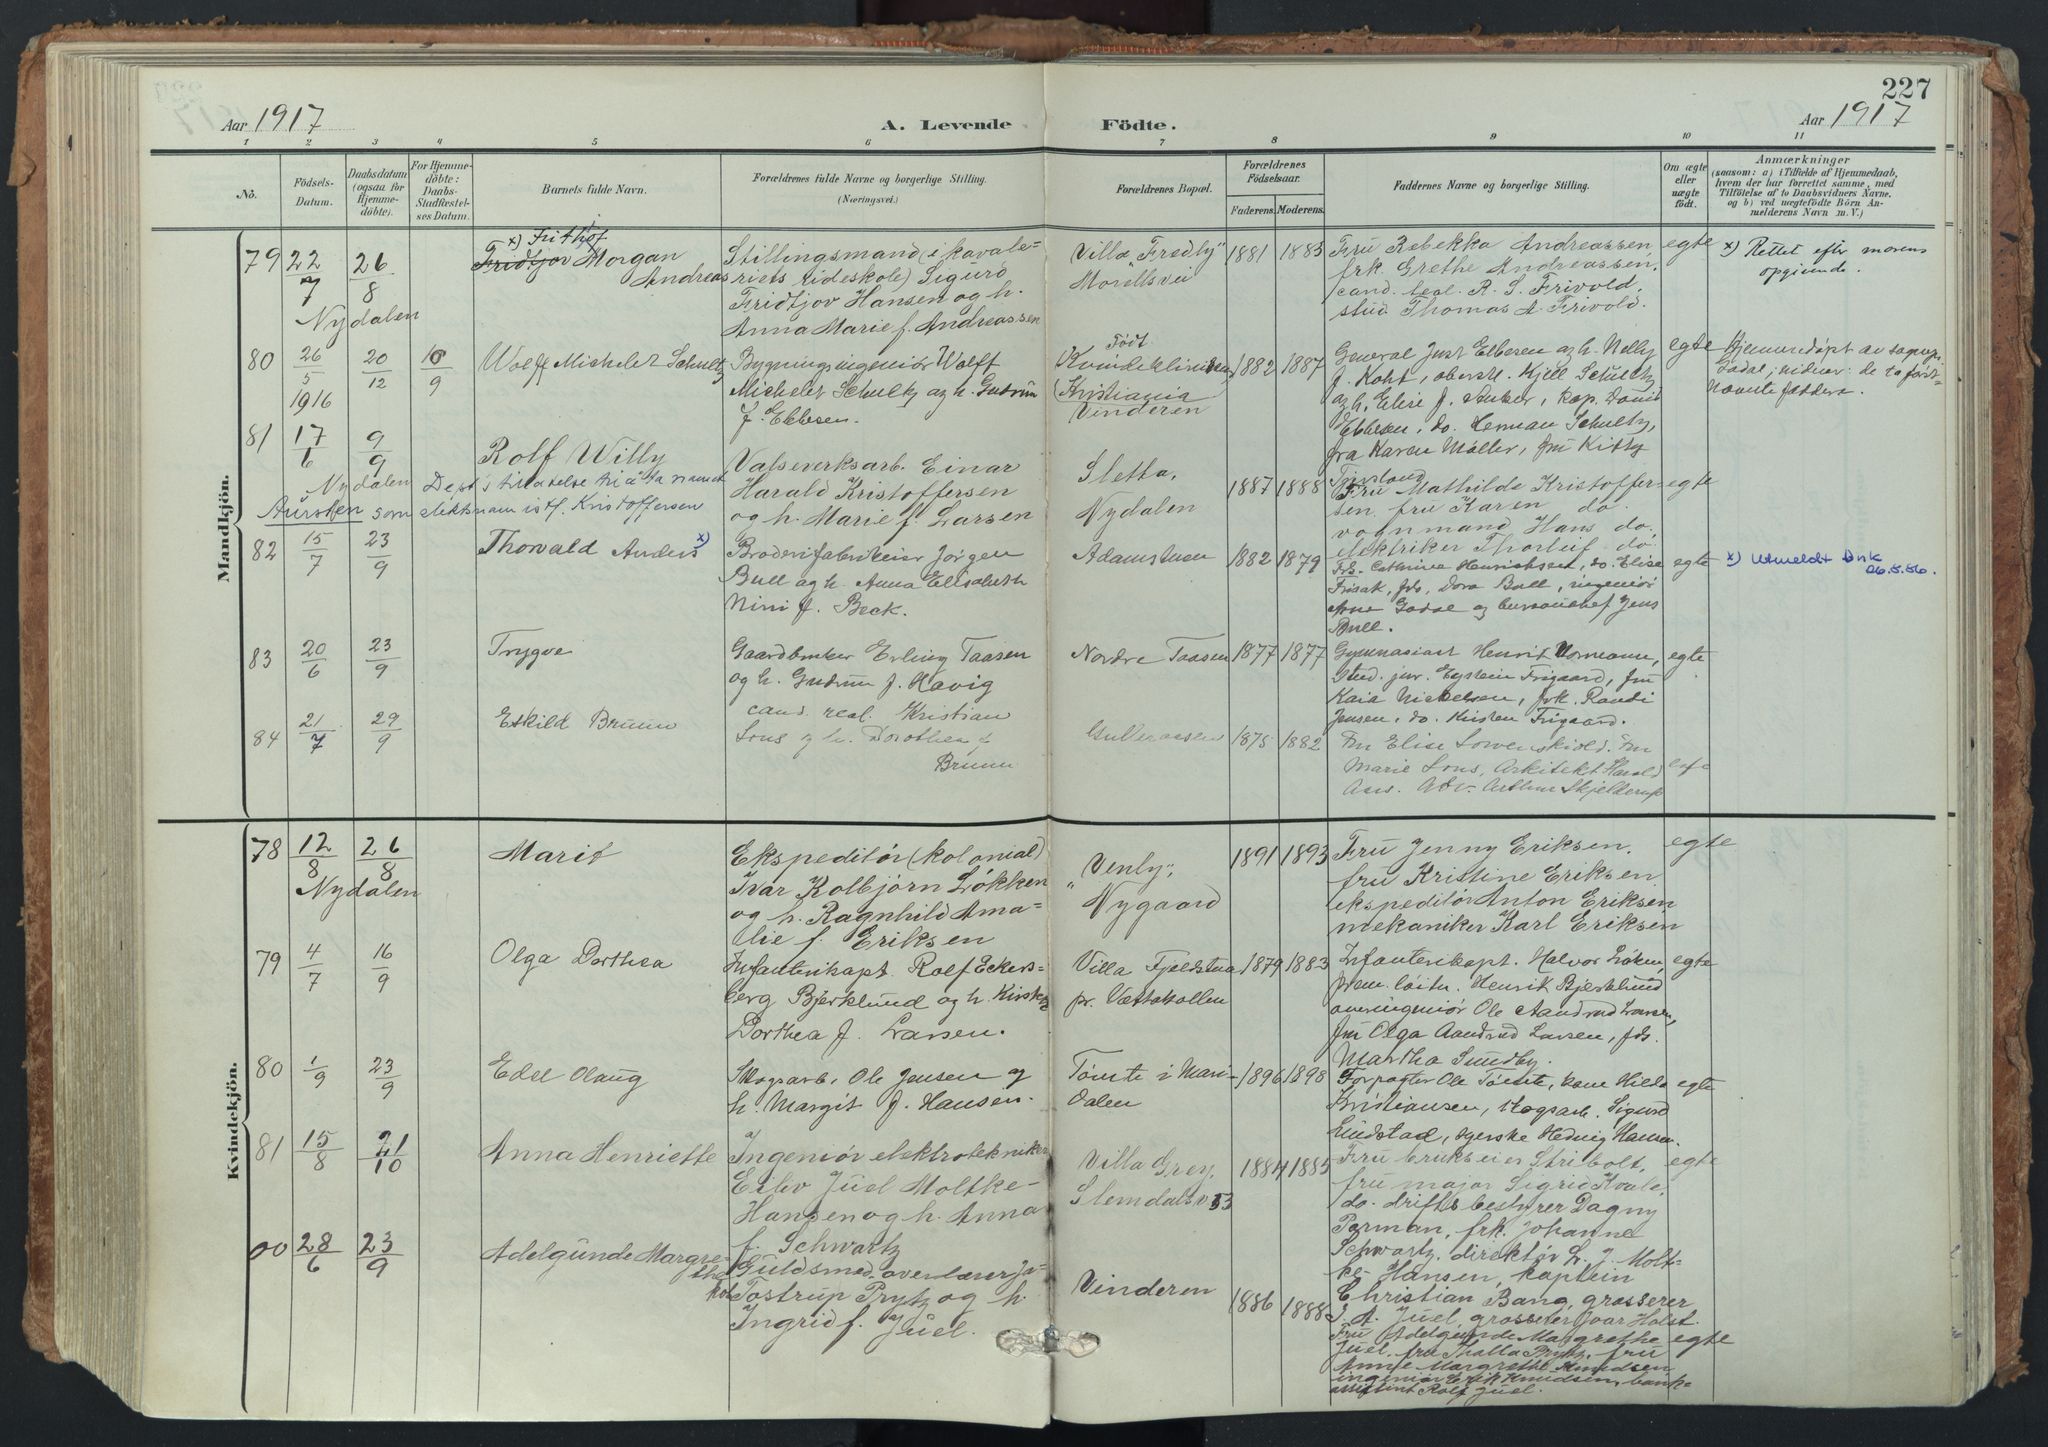 227
Aar 1917
A. Levende Födte.
Aar 1917
1 2 3 4 5 6 7 8 9 10 11
No.
Födsels-
Datum.
Daabsdatum
(ogsaa for
Hjemme-
döbte).
For Hjemme-
döbte:
Daabs-
Stadfæstel-
ses Datum.
Barnets fulde Navn.
Forældrenes fulde Navne og borgerlige Stilling.
(Næringsvei.)
Forældrenes Bopæl.
Forældrenes
Födselsaar.
Faderens. Moderens.
Faddernes Navne og borgerlige Stilling.
Om ægte
eller
uægte
födt.
Anmærkninger
(saasom: a) i Tilfælde af Hjemmedaab,
hvem der har forrettet samme, med
Tilföielse af to Daabsvidners Navne.
og b) ved uægtefödte Börn An-
melderens Navn m. V.)
Mandkjön.
79 22/7 26/8
Nydalen
x) Frithjof
Fridtjov Morgan
Andreas
Stillingsmand (i kavale-
riets rideskole) Sigurd
Fridtjov Hansen og h.
Anna Marie f. Andreassen
Villa "Fredly"
Morellsvei
1881 1883
Fru Rebekka Andreassen,
frk. Grethe Andreassen,
cand. teol. R. S. Frivold,
stud Thomas A. Frivold.
egte
x) Rettet efter morens
opgivende.
80 26/5 1916 20/12 10/9
Wolff Michelet Schultz
Bygningsingeniör Wolff
Michelet Schultz og h. Gudrun
f. Ebbesen.
Födt
Kvindeklinikken,
(Kristiania
Vinderen
1882 1887
General Just Ebbesen og h. Nelly
f. Koht, oberstl. Kjell Schultz
og h. Elise f. Anker, kap. David
Ebbesen, do. Herman Schultz,
fra Karen Møller, fru Kitty
egte
Hjemmedöpt av sognepr.
Gadal; vidner: de to först-
nævnte faddere.
81 17/6 9/9
Nydalen
Rolf Willy
Dep.s tilladelse til å ta navnet
Aursten som slektsnavn istf. Kristoffersen
Valseverksarb. Einar
Harald Kristoffersen
og h. Marie f. Larsen
Sletta,
Nydalen
1887 1888
Fru Mathilde Kristoffer-
sen, fru Karen do.
vognmand Hans do,
elektriker Thorleif do.
egte
82 15/7 23/9
Thorvald Anders x)
Broderifabrikeier Jörgen
Bull og h. Anna Elisabeth
Nini f. Beck.
Adamstuen
1882 1879
Frk. Cathrine Henrichsen, do. Elise
frk. Dora Bull, ingeniör
Arne Gadal og bureauchef Jens
Bull.
egte
x) Utmeldt Dnk
26.8.86.
83 20/6 23/9
Trygve
Gaardbruker Erling Taasen
og h. Gudrun f. Havig
Nordre Taasen
1877 1877
Gymnasiast Henrik
Stud. jur. Eystein Frigaard, fru
Kaia Nickelsen, frk. Randi
Jensen, do. Kirsten Frigaard.
egte
84 21/7 29/9
Eskild Bruun
cand. real. Kristian
Lous og h. Dorothea f
Bruun
Gulleraasen
1875 1882
Fru Elise Lowenskiold. Fru
Marie Lous, Arkitekt Harald
Aars. Adv. Arthur Skjelderup
Kvindekjön.
78 12/8 26/8
Nydalen
Marit
Ekspeditör (kolonial)
Ivar Kolbjörn Lökken
og h. Ragnhild Ama-
lie f. Eriksen
"Venly",
Nygaard
1891 1893
Fru Jenny Eriksen,
fru Kristine Eriksen
ekspeditör Anton Eriksen
mekaniker Karl Eriksen
egte
79 4/7 16/9
Olga Dorthea
Infanterikapt. Rolf Eckers-
berg Bjerklund og h. Kirsten
Dorthea f. Larsen.
Villa Fjeldstua
pr. Vættakollen
1879 1883
Infanterikapt. Halvor Löken,
prem. löitn. Henrik Bjerklund
overingeniör Ole Aandrud Larsen,
fru Olga Aandrud Larsen, frk.
Martha Sundby.
egte
80 1/9 23/9
Edel Olaug
Skogsarb. Ole Jensen og
h. Margit f. Hansen.
Tömte i Mari-
dalen
1896 1898
Forpagter Ole Tömte, kone Hilda
Kristiansen, skogsarb. Sigurd
Lindstad, syerske Hedvig Hansen.
egte
81 15/8 21/10
Anna Henriette
Ingeniör elektrotekniker
Eilev Juel Moltke-
Hansen og h. Anna
f. Schwartz
Villa Grey,
Slemdalsv 53
1884 1885
Fru brukseier Stribolt,
fru major Sigrid Kvale,
do. driftsbestyrer Dagny
Parman, frk. Johanne
Schwartz, direktör L. J. Molt-
ke-Hansen, kaptein
Christian Bang, grosserer
J. A. Juel, grosserer Ivar Holst.
egte
00 28/6 23/9
Adelgunde Margre-
the
Guldsmed, overlærer Ja-
kob Tostrup Prytz og h.
Ingrid f. Juel.
Vinderen
1886 1888
Fru Adelgunde Margrethe
Juel, fru Thalla Prytz, fru
Anne Margrethe Knudsen
ingeniör Erik Knudsen, bank-
assistent Rolf Juel.
egte